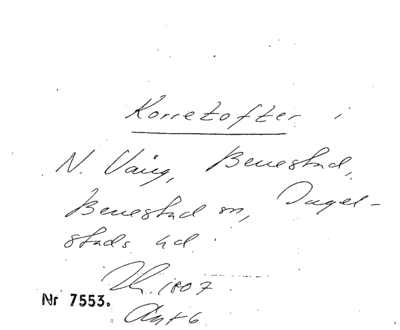 Korretofter i
N. Vång, Benestad,
Benestad sn, Ingel-
stads hd.
Lh. 1807
Nr 7553.
Akt 6